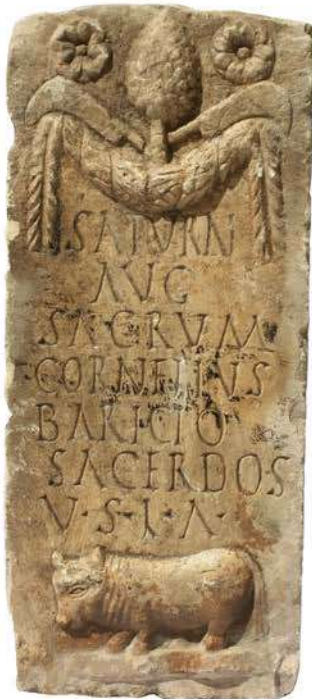 SATVRN
AVG
SACRVM
CORNELIVS
BARICIO
SACERDOS
V·S·L·A·